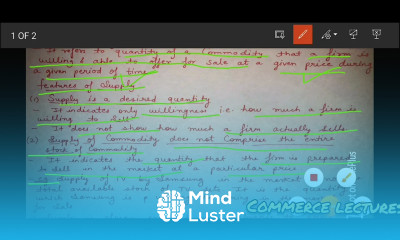 1 OF 2
It refers to quantity of a Commodity that a firm is
willing & able to offer for sale at a given price during
a given period of time
features of Supply
(1) Supply is a desired quantity
- It indicates only willingness i.e. how much a firm is
willing to sell
- It does not show how much a firm actually sells
(2) Supply of Commodity does not Comprise the entire
stock of Commodity.
- It indicates the quantity that the firm is prepared
to sell in the market at a particular price
Supply of T.V by Samsung in the market
total available stock It is the quantity
which Samsung is
Mind
Luster
COMMERCE LECTURES
Plus